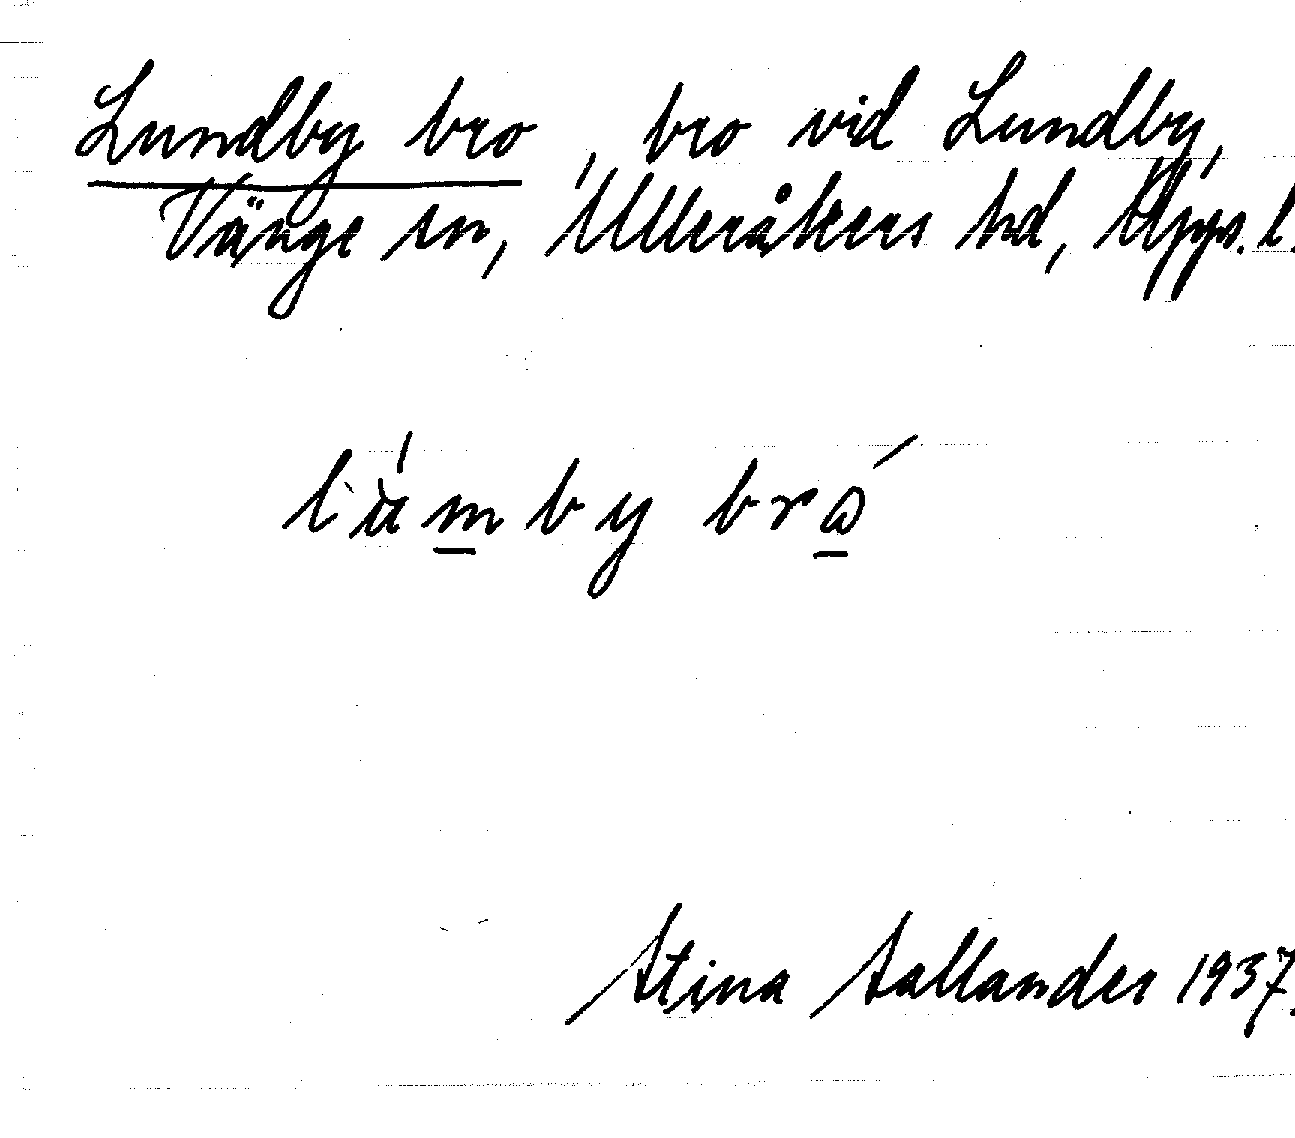 Lundby bro, bro vid Lundby,
Vänge sn, Ulleråkers hd, Upps. l.
lu̇́m̲by brά̲
Stina Sallander 1937.